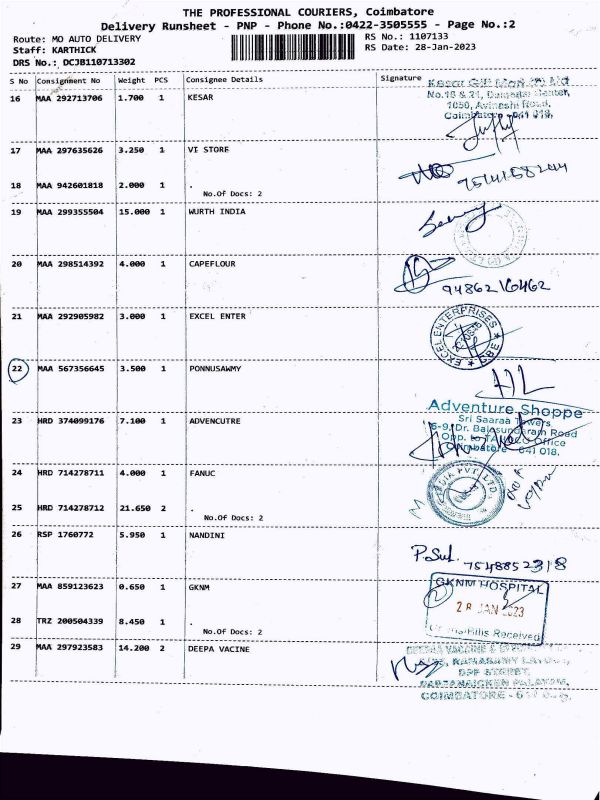 THE PROFESSIONAL COURIERS, Coimbatore
Delivery Runsheet - PNP - Phone No.:0422-3505555 - Page No.:2
Route: MO AUTO DELIVERY
RS No.: 1107133
Staff: KARTHICK
RS Date: 28-Jan-2023
DRS No.: DCJB110713302
S No Consignment No Weight PCS Consignee Details Signature
16 MAA 292713706 1.700 1 KESAR
No.18 & 21, Damodar Center,
1050, Avinashi Road,
Coimbatore - 641 018.
17 MAA 297635626 3.250 1 VI STORE
18 MAA 942601818 2.000 1 .
No.Of Docs: 2
19 MAA 299355504 15.000 1 WURTH INDIA
20 MAA 298514392 4.000 1 CAPEFLOUR
94862 16462
21 MAA 292905982 3.000 1 EXCEL ENTER
EXCEL ENTERPRISES
CBE
22 MAA 567356645 3.500 1 PONNUSAWMY
23 HRD 374099176 7.100 1 ADVENCUTRE
Adventure Shoppe
Sri Saaraa Towers
6-9, Dr. Balasundaram Road
Opp. to Office
Coimbatore - 641 018.
24 HRD 714278711 4.000 1 FANUC
INDIA PVT. LTD.
25 HRD 714278712 21.650 2 .
No.Of Docs: 2
26 RSP 1760772 5.950 1 NANDINI
7548852318
27 MAA 859123623 0.650 1 GKNM
GKNM HOSPITAL
28 JAN 2023
Bills Received
28 TRZ 200504339 8.450 1 .
No.Of Docs: 2
29 MAA 297923583 14.200 2 DEEPA VACINE
COIMBATORE